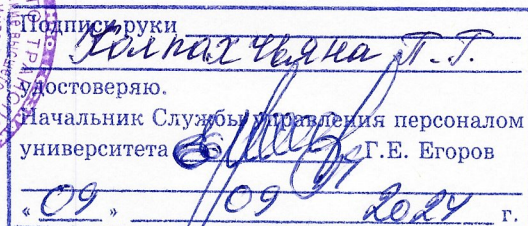 Подписи руки
Колпахчьяна П.Г.
удостоверяю.
Начальник Службы управления персоналом
университета Г.Е. Егоров
« 09 » 09 2024 г.